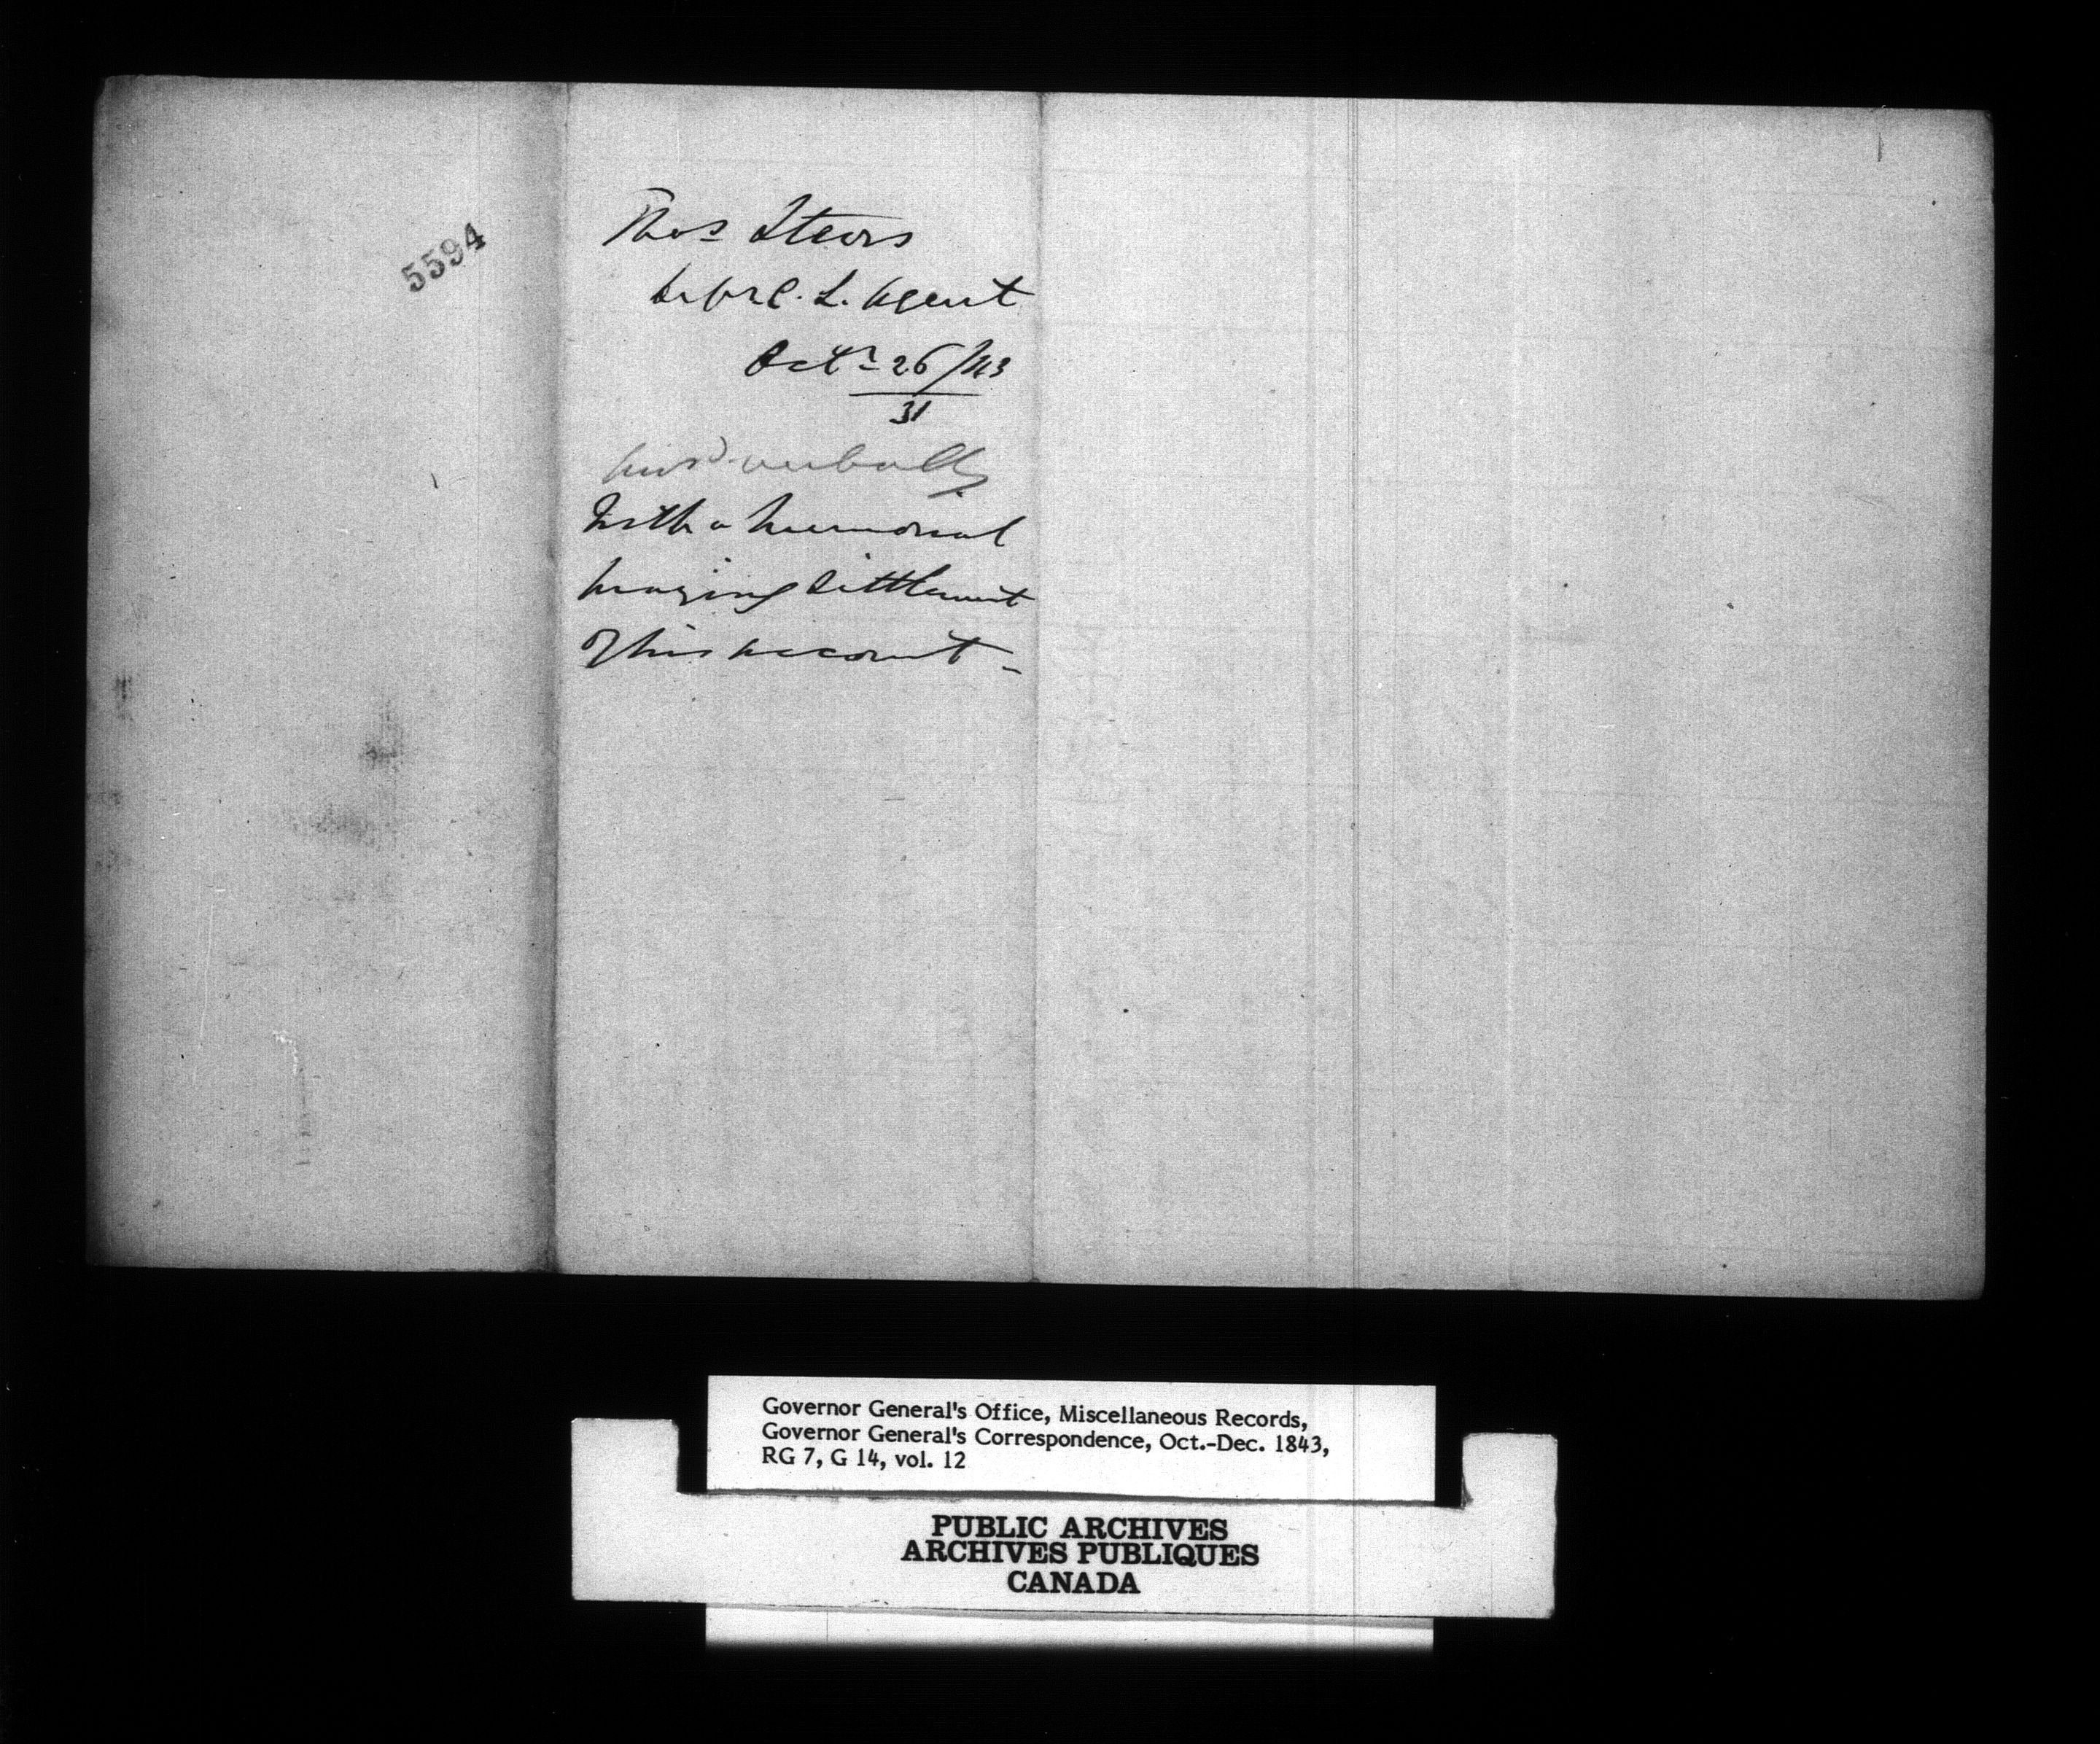 5594
Thos Steers
C. L. Agent
Octr 26/43
31
ansd verbally
With a Memorial
praying Settlement
of his account -
Governor General's Office, Miscellaneous Records,
Governor General's Correspondence, Oct.-Dec. 1843,
RG 7, G 14, vol. 12
PUBLIC ARCHIVES
ARCHIVES PUBLIQUES
CANADA